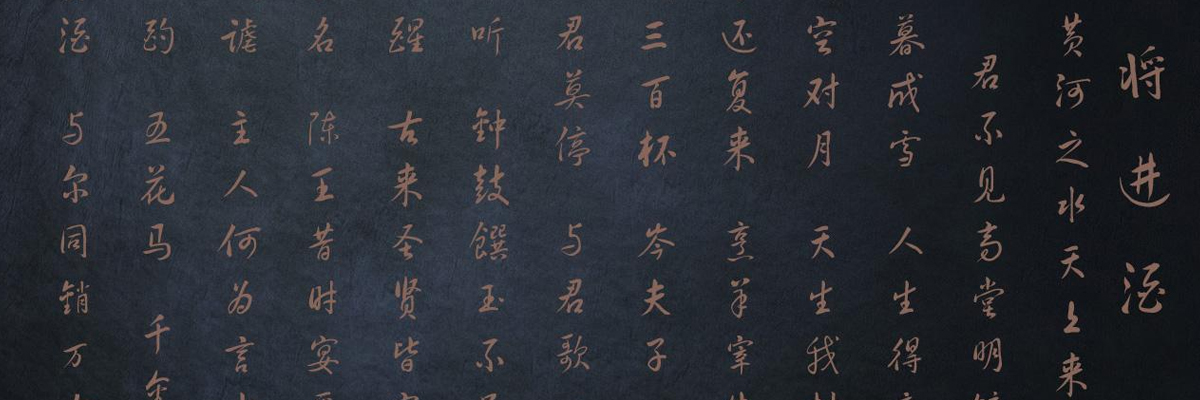 将进酒
黄河之水天上来
君不见高堂明
暮成雪 人生得
空对月 天生我
还复来 烹羊宰
三百杯 岑夫子
君莫停 与君歌
听 钟鼓馔玉不
醒 古来圣贤皆
名 陈王昔时宴
谑 主人何为言
酌 五花马 千金
酒 与尔同销万